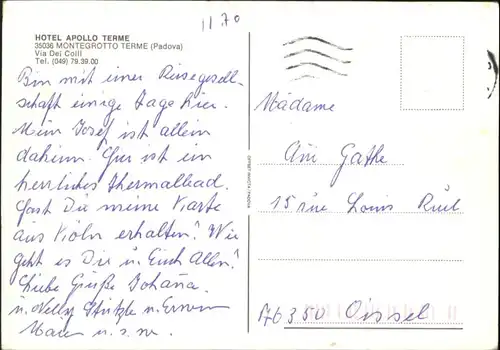 11 70
HOTEL APOLLO TERME
35036 MONTEGROTTO TERME (Padova)
Via Dei Colli
Tel. (049) 79.39.00
Bin mit einer Reisegesell-
schaft einige Tage hier.
Mein Josef ist allein
daheim. Hier ist ein
herrliches Thermalbad.
Hast Du meine Karte
aus Köln erhalten? Wie
geht es Dir u. Euch Allen?
Liebe Grüße Johana.
u. Nelly u. Erwin
u. s. w.
Madame
Gathe
15 rue Louis
76350 Oissel